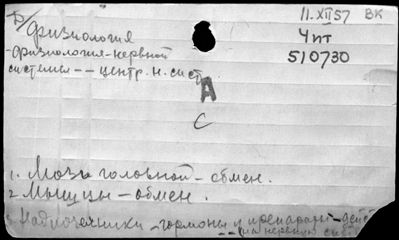 11.XII57 ВК
Физиология
Чит
-физиология-нервной
510730
системы -- центр.н.сист
А
С
1. Мозг головной - обмен.
2 Мышцы - обмен.
3 Надпочечники - гормоны и препараты - дейст
-- на нервную сист